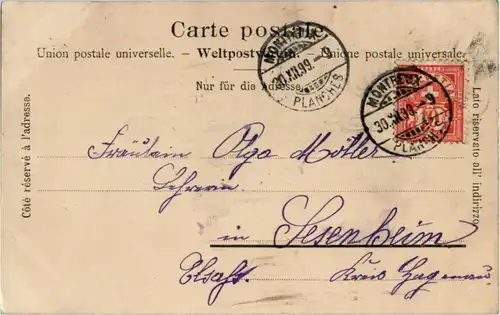 Carte postale
Union postale universelle. – Weltpostverein. – Unione postale universale.
Nur für die Adresse.
MONTREUX
30.XII.99.–9
PLANCHES
MONTREUX
30.XII.99.–9
PLANCHES
Côté réservé à l'adresse.
Lato riservato all' indirizzo.
Fräulein Olga
Lehrerin
in Sesenheim
Elsaß. Kreis Hagenau